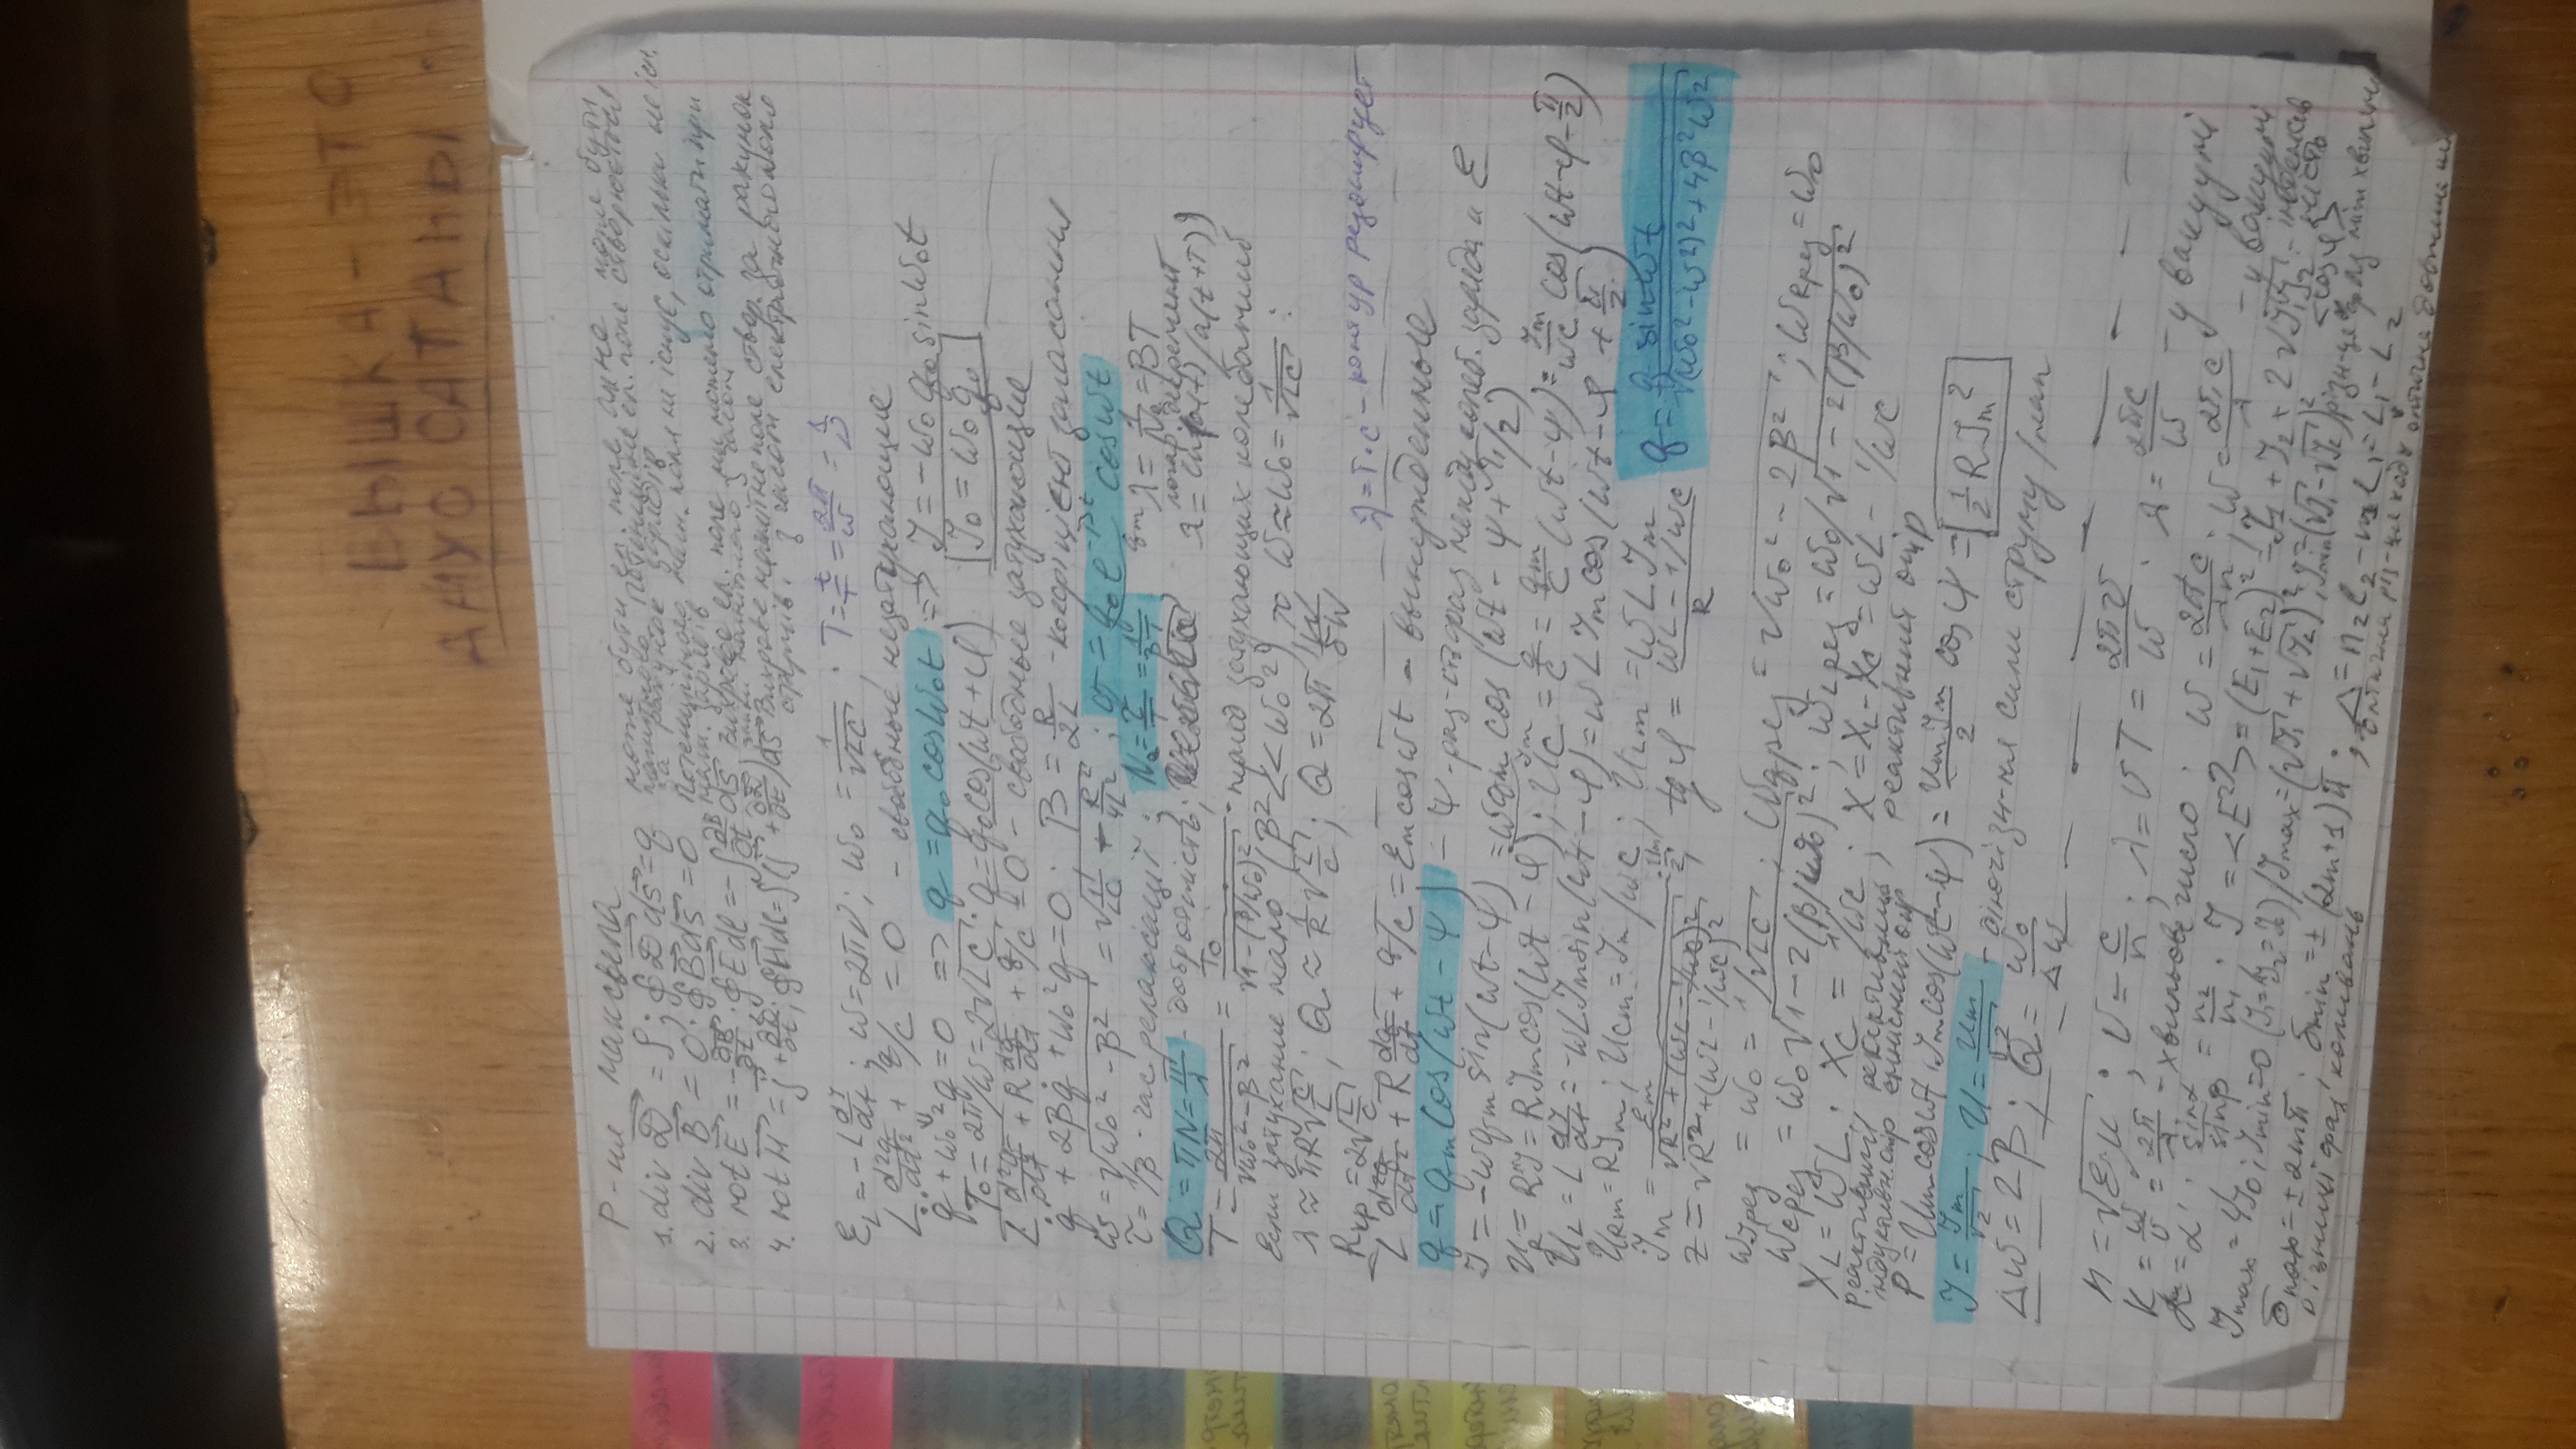 ВЫШКА - ЭТО
АНУС САТАНЫ
Р-ня максвела
1. div D⃗ = ρ; ∮D⃗dS⃗ = q може бути ел. поле але не може бути
магнітного. Потенціине ел. поле створюється
за рахунок зарядів
2. div B⃗ = 0; ∮B⃗dS⃗ = 0 Потенціиного магн. поля не існує, оскільки не існ.
магн. зарядів
3. rot E⃗ = -∂B⃗/∂t; ∮E⃗dl = -∫∂B/∂t dS⃗ вихрове ел. поле ми можемо отримати при
зміни магнітного з часом
4. rot H⃗ = j⃗ + ∂D⃗/∂t; ∮H⃗dl = ∫(j⃗ + ∂D⃗/∂t)dS⃗ Вихрове магнітне поле створ. за рахунок
струмів і з часом електричного поля
ℰ_L = -L dI/dt; ω = 2πν; ω₀ = 1/√LC; T = t/T = 2π/ω = 1/ν
L d²q/dt² + q/c = 0 - свободные незатухающие
q̈ + ω₀²q = 0 => q = q₀cosω₀t => I = -ω₀q₀sinω₀t
T₀ = 2π/ω = 2√LC; q = q₀cos(ωt + φ) I₀ = ω₀q₀
L d²q/dt² + R dq/dt + q/c = 0 - свободные затухающие
q̈ + 2βq̇ + ω₀²q = 0; β = R/2L - коефіцієнт загасання
ω = √(ω₀² - β²) = √(1/LC - R²/4L²); q = q₀e^(-βt) cosωt
τ = 1/β - час релаксації; Nₑ = τ/T = 1/βT qm λ = 1/Nₑ = βT
логар. декремент
Q = πN = π/λ - добротність; λ = ln(a(t)/a(t+T))
T = 2π/√(ω₀² - β²) = T₀/√(1 - (β/ω₀)²) - период затухающих колебаний
Если затухание мало (β² << ω₀²), то ω ≈ ω₀ = 1/√LC :
λ ≈ πR√(C/L); Q ≈ 1/R √(L/C); Q = 2π W/δW
Rкр = 2√(L/C)
λ = T·c - контур резонирует
L d²q/dt² + R dq/dt + q/c = ℰm cosωt - вынужденные
q = qm cos(ωt - ψ) - ψ - раз-сть фаз между колеб. заряда и ℰ
I = -ωqm sin(ωt - ψ) = ωqm cos(ωt - ψ + π/2)
Im
U_R = RI = RIm cos(ωt - φ); U_C = q/c = qm/c (ωt - ψ) = Im/ωC cos(ωt - φ - π/2)
U_L = L dI/dt = -ωLIm sin(ωt - φ) = ωLIm cos(ωt - φ + π/2)
URm = RIm; UCm = Im/ωC; ULm = ωLIm
Im = ℰm/√(R² + (ωL - 1/ωC)²) = Um/z; tgφ = (ωL - 1/ωC)/R q = q sinωt/√((ω₀² - ω²)² + 4β²ω²)
z = √(R² + (ωL - 1/ωC)²)
ωIрез = ω₀ = 1/√LC; ωqрез = √(ω₀² - 2β²); ωRрез = ω₀
ωCрез = ω₀√(1 - 2(β/ω₀)²); ωLрез = ω₀/√(1 - 2(β/ω₀)²)
X_L = ωL; X_C = 1/ωC; X = X_L - X_C = ωL - 1/ωC
реактивний реактивний реактивний опір
індуктивн. опір ємнісний опір
P = Um cosωt · Im cos(ωt - ψ) = UmIm/2 cosψ = 1/2 RIm²
I = Im/√2; U = Um/√2 - діючі зн-ня сили струму/нап
Δω = 2β; Q = ω₀/Δω
n = √εμ; v = c/n; λ = vT = 2πv/ω; λ = 2πc/ω - у вакуумі
K = ω/v = 2π/λ - хвильове число; ω = 2πc/λn; ω = 2πc/λ - у вакуумі
α = α'; sinα/sinβ = n₂/n₁; I = <E²> = (E₁ + E₂)² = I₁ + I₂ + 2√I₁I₂ <cosφ> - інтенсивність
Imax = 4I₀; Imin = 0 (I₁ = I₂ = I₀) / Imax = (√I₁ + √I₂)²; Imin = (√I₁ - √I₂)² різн-ця фаз між хвилями
δmax = ±2mπ; δmin = ±(2m+1)π; Δ = n₂l₂ - n₁l₁ = L₁ - L₂
різниці фаз коливань оптична різ-ця ходу оптична довжина